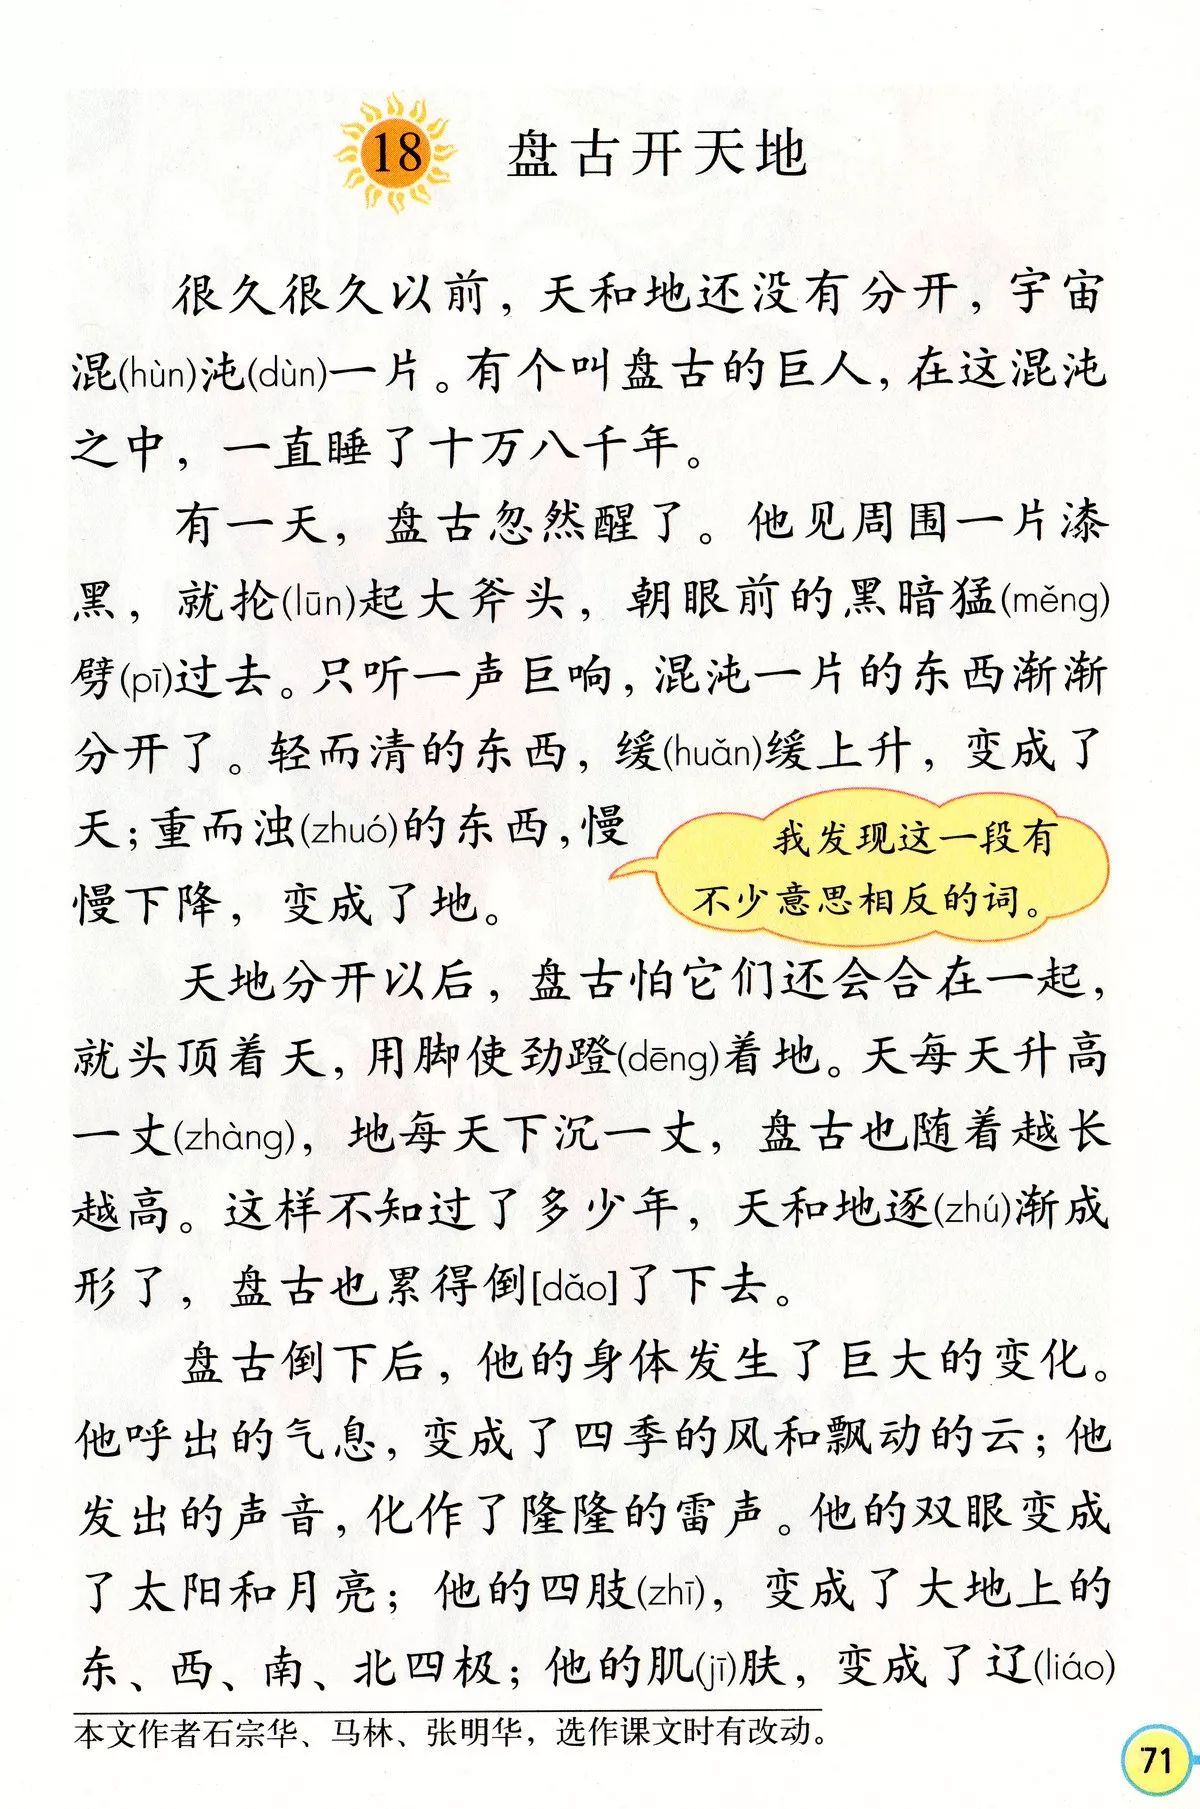 18 盘古开天地
很久很久以前，天和地还没有分开，宇宙
混(hùn)沌(dùn)一片。有个叫盘古的巨人，在这混沌
之中，一直睡了十万八千年。
有一天，盘古忽然醒了。他见周围一片漆
黑，就抡(lūn)起大斧头，朝眼前的黑暗猛(měng)
劈(pī)过去。只听一声巨响，混沌一片的东西渐渐
分开了。轻而清的东西，缓(huǎn)缓上升，变成了
天；重而浊(zhuó)的东西，慢
慢下降，变成了地。
我发现这一段有
不少意思相反的词。
天地分开以后，盘古怕它们还会合在一起，
就头顶着天，用脚使劲蹬(dēng)着地。天每天升高
一丈(zhàng)，地每天下沉一丈，盘古也随着越长
越高。这样不知过了多少年，天和地逐(zhú)渐成
形了，盘古也累得倒[dǎo]了下去。
盘古倒下后，他的身体发生了巨大的变化。
他呼出的气息，变成了四季的风和飘动的云；他
发出的声音，化作了隆隆的雷声。他的双眼变成
了太阳和月亮；他的四肢(zhī)，变成了大地上的
东、西、南、北四极；他的肌(jī)肤，变成了辽(liáo)
本文作者石宗华、马林、张明华，选作课文时有改动。
71